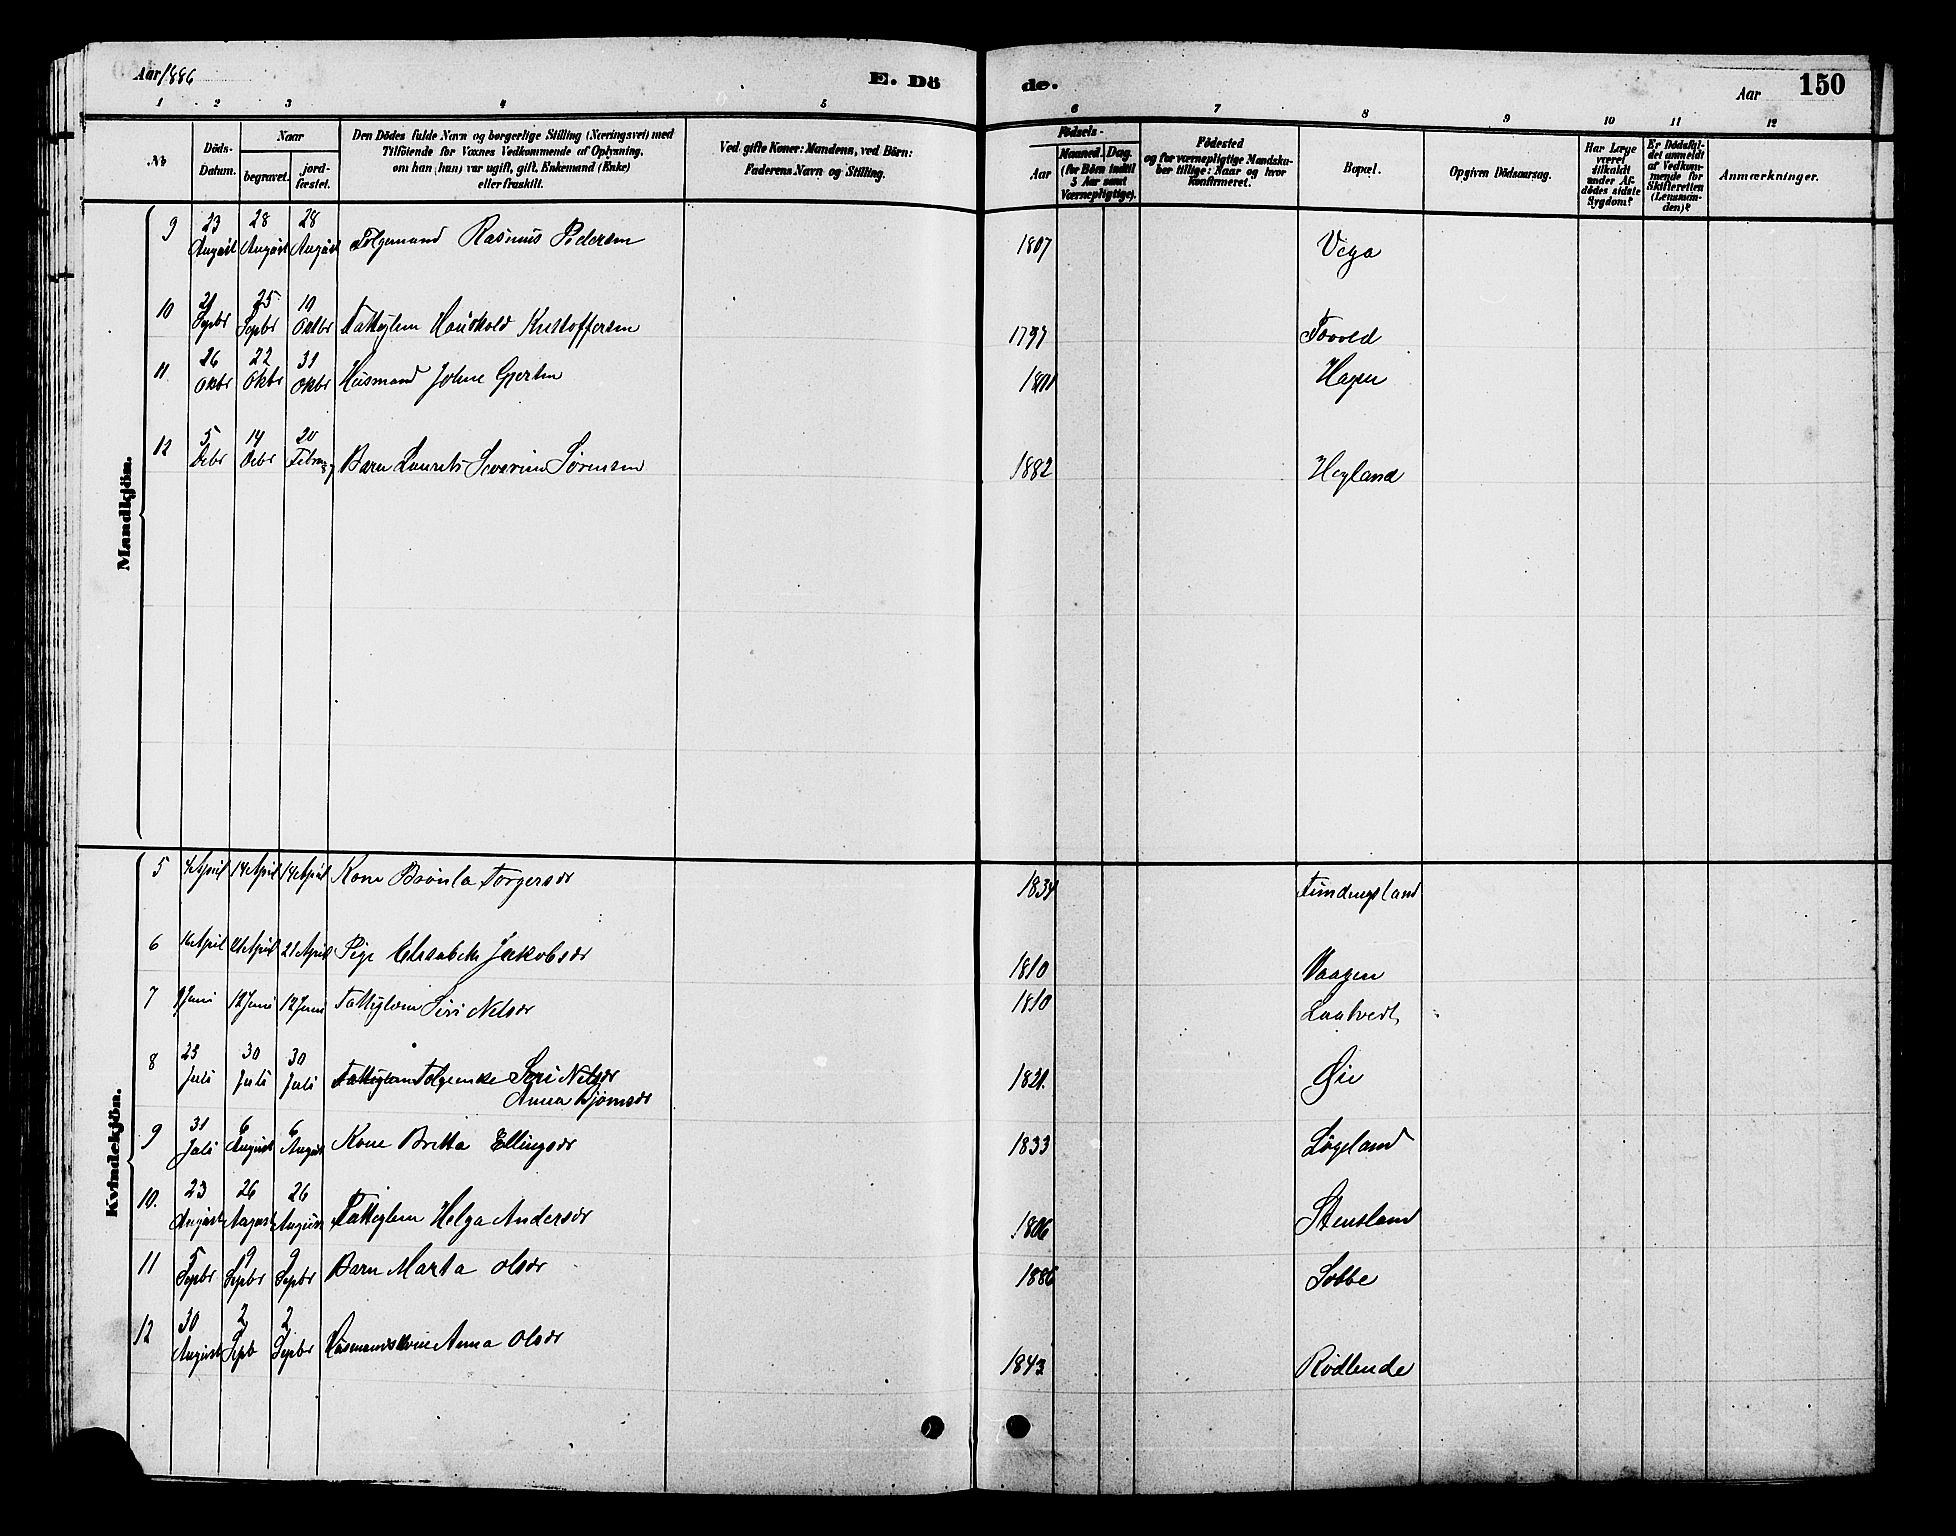 Aar 1886
E. Dö
de.
Aar
150
1 2 3 4 5 6 7 8 9 10 11 12
No
Döds-
Datum.
Naar
begravet.
jord-
fæstet.
Den Dödes fulde Navn og borgerlige Stilling (Næringsvei) med
Tilföiende for Voxnes Vedkommende af Oplysning,
om han (hun) var ugift, gift, Enkemand (Enke)
eller fraskilt.
Ved gifte Koner: Mandens, ved Börn:
Faderens Navn og Stilling.
Födsels-
Aar
Maaned. Dag.
(for Börn indtil
5 Aar samt
Værnepligtige).
Födested
og for værnepligtige Mandska-
ber tillige: Naar og hvor
Konfirmeret.
Bopæl.
Opgiven Dödsaarsag.
Har Læge
været
tilkaldt
under Af-
dödes sidste
Sygdom?
Er Dödsfal-
det anmeldt
af Vedkom-
mende for
Skifteretten
(Lensman-
den)?
Anmærkninger.
Mandkjön.
9 23 August 28 August 28 August Folgemand Rasmus Pedersen 1807
10 21 Sepbr 25 Sepbr 10 Oktbr Fattiglem Kristoffersen 1797
11 Okbr 22 Okbr 31 Okbr Husmand Hagen
12 5 Debr 14 Debr 20 Barn Laurits Severin Sørensen 1882 Høyland
Kvindekjön.
5 4 April 14 April 14 April Kone Torgersdr 1834
6 16 April 21 April 21 April Pige Elisabeth Jakobsdr 1810 Vaagen
7 9 Juni 12 Juni 12 Juni Fattiglem Siri Nelsdr 1810
8 23 Juli 30 Juli 30 Juli Fattiglem Folgenke Seri Nelsdr 1821. Øie
Anna Bjørnsdr
9 31 Juli 6 August 6 August Kone Britta Ellingsdr 1833 Løgeland
10. 23 August 26 August 26 August Fattiglem Helga Andersdr 1806 Stensland
11 5 Sepbr 9 Sepbr 9 Sepbr Barn Marta Olsdr 1886
12 30 August 2 Sepb 2 Sepbr Husmandskone Anna Olsdr 1843 Rødlende